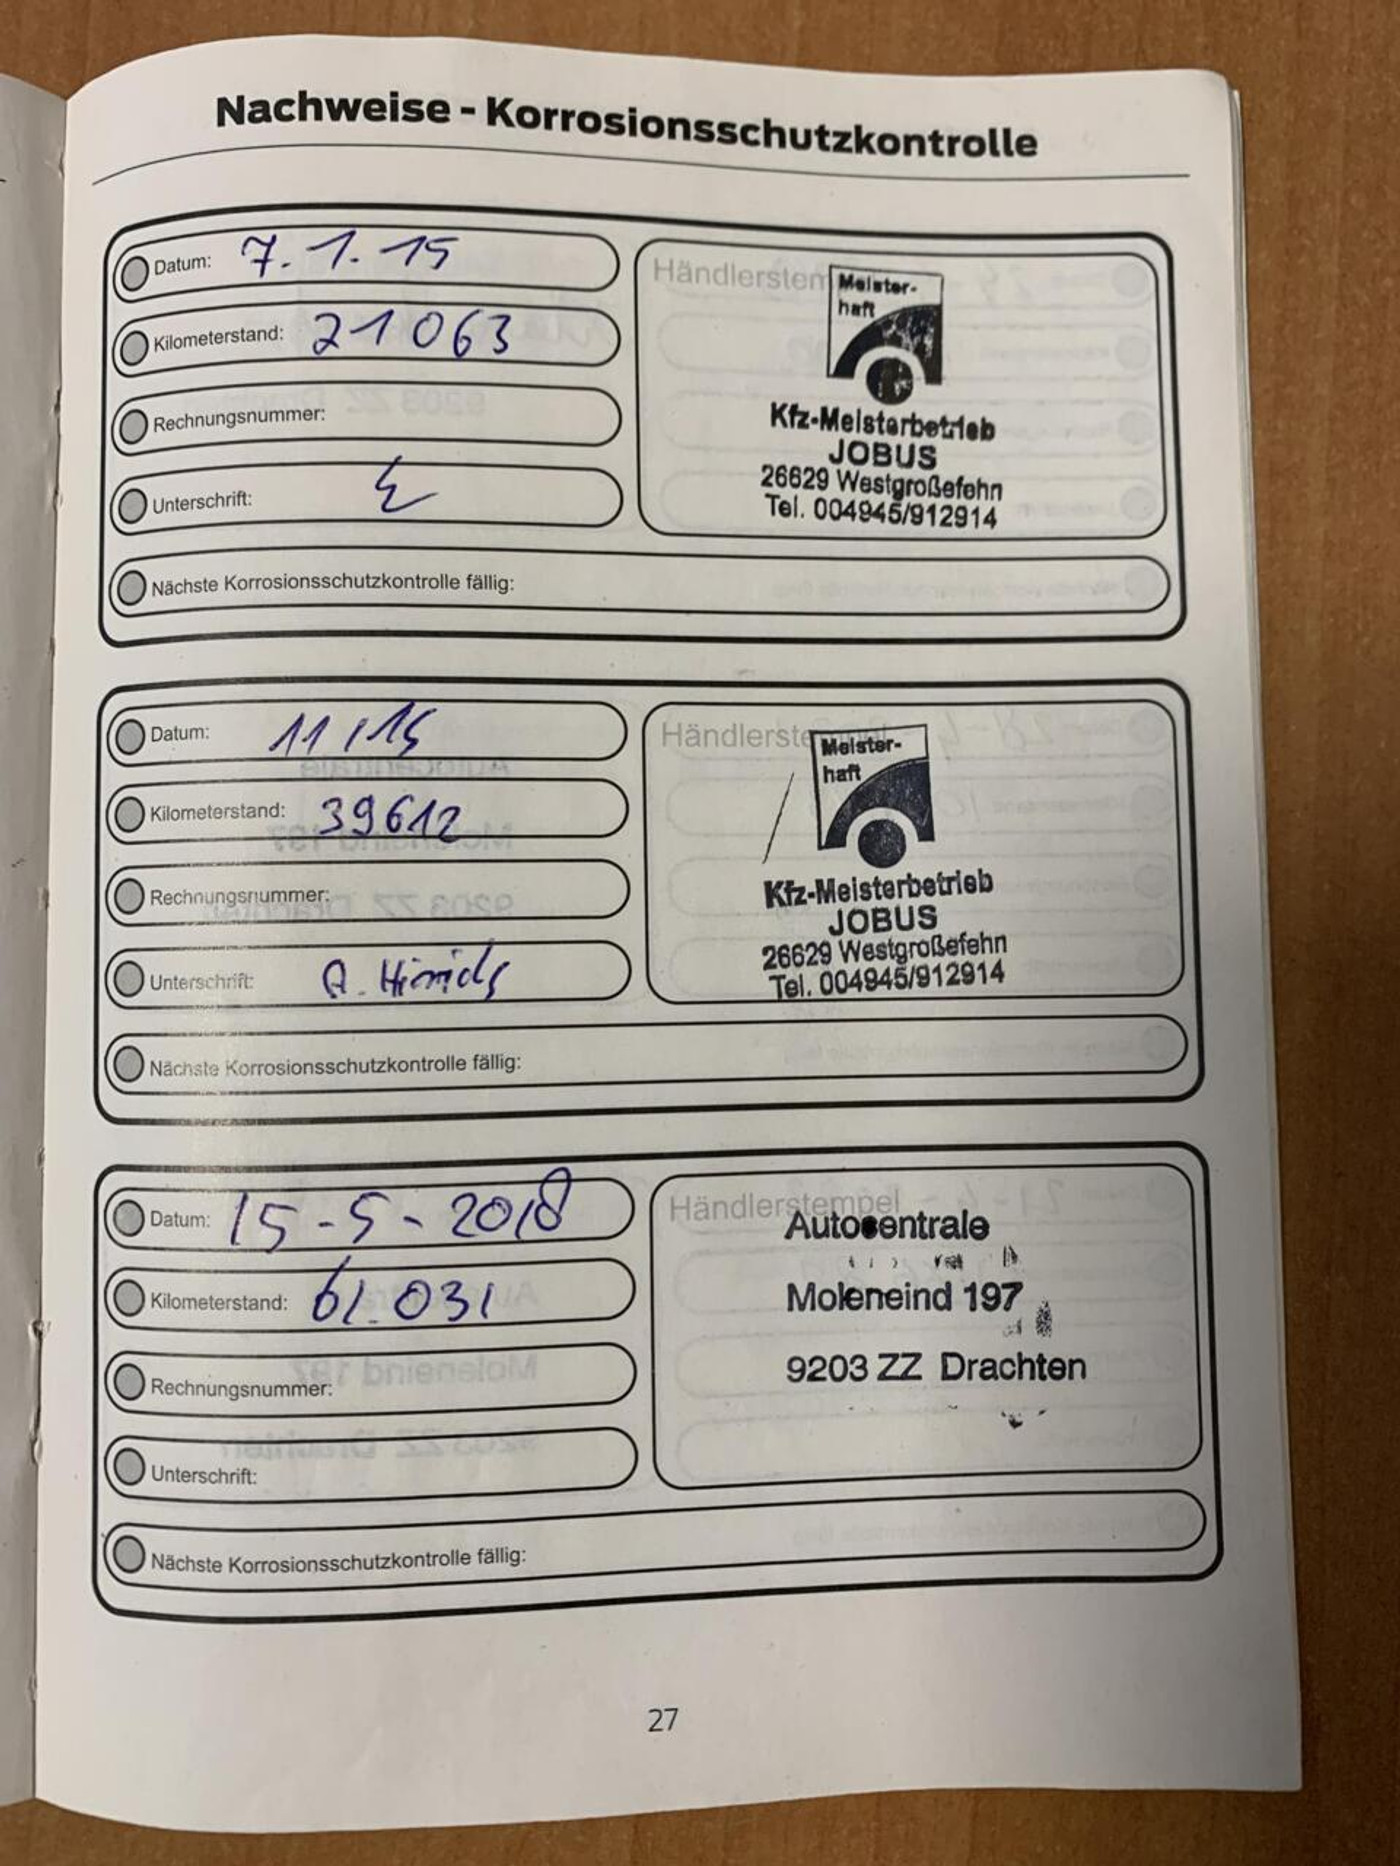 Nachweise - Korrosionsschutzkontrolle
Datum: 7.1.15
Kilometerstand: 21063
Rechnungsnummer:
Unterschrift:
Nächste Korrosionsschutzkontrolle fällig:
Händlerstem
Meister-
haft
Kfz-Meisterbetrieb
JOBUS
26629 Westgroßefehn
Tel. 004945/912914
Datum: 11/15
Kilometerstand: 39612
Rechnungsnummer:
Unterschrift: A. Hinrichs
Nächste Korrosionsschutzkontrolle fällig:
Händlerste
Meister-
haft
Kfz-Meisterbetrieb
JOBUS
26629 Westgroßefehn
Tel. 004945/912914
Datum: 15-5-2018
Kilometerstand: 61.031
Rechnungsnummer:
Unterschrift:
Nächste Korrosionsschutzkontrolle fällig:
Händlerstempel
Autocentrale
Moleneind 197
9203 ZZ Drachten
27